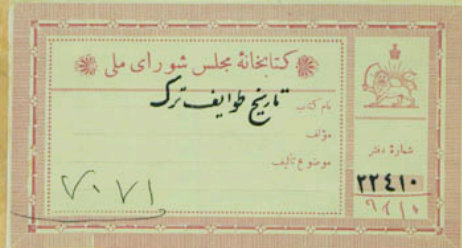 کتابخانهٔ مجلس شورای ملی
نام کتاب تاریخ طوایف ترک
مؤلف
موضوع تألیف
شمارهٔ دفتر
۲۲۴۱۰
۷۰۷۱